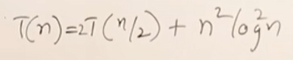 T(n)=2T(n/2) + n²log²n